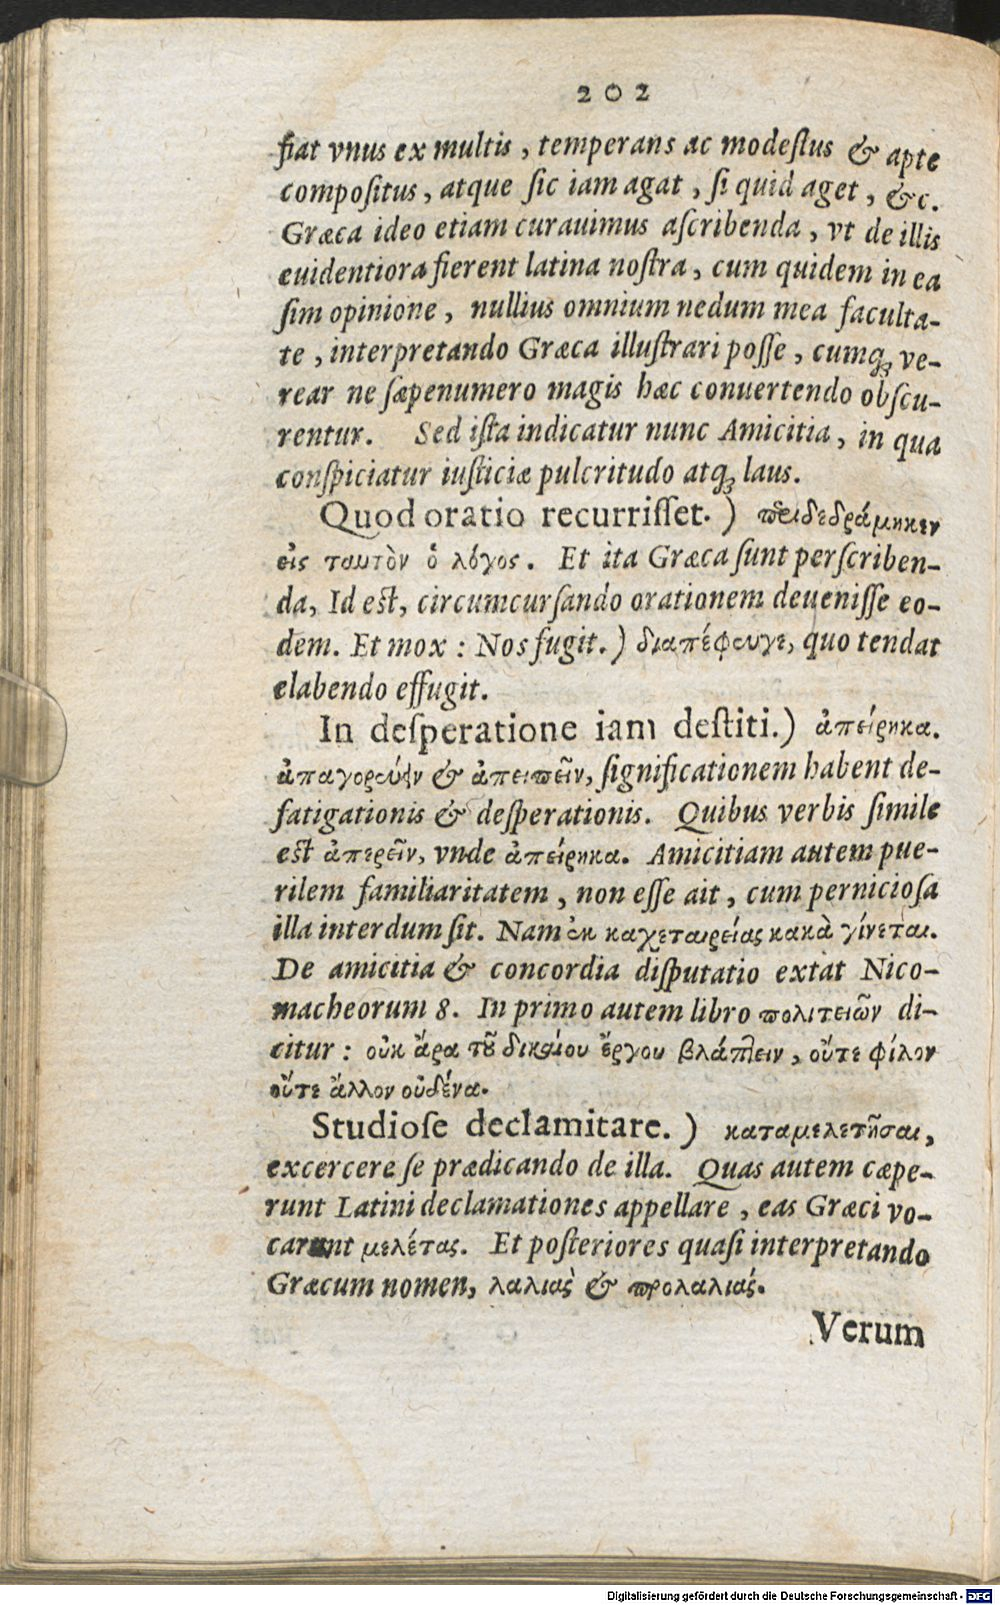 202
fiat vnus ex multis, temperans ac modeſtus & apte
compoſitus, atque ſic iam agat, ſi quid aget, &c.
Græca ideo etiam curauimus aſcribenda, vt de illis
euidentiora fierent latina noſtra, cum quidem in ea
ſim opinione, nullius omnium nedum mea faculta-
te, interpretando Græca illuſtrari poſſe, cumqꝫ ve-
rear ne ſæpenumero magis hæc conuertendo obſcu-
rentur. Sed iſta indicatur nunc Amicitia, in qua
conſpiciatur iuſticiæ pulcritudo atqꝫ laus.
Quod oratio recurriſſet.) πεειδεδράμηκεν
εἰς ταυτὸν ὁ λόγος. Et ita Græca ſunt perſcriben-
da, Id eſt, circumcurſando orationem deueniſſe eo-
dem. Et mox : Nos fugit.) διαπέφευγε, quo tendat
elabendo effugit.
In deſperatione iam deſtiti.) ἀπείρηκα.
ἀπαγορεύειν & ἀπειπεῖν, ſignificationem habent de-
fatigationis & deſperationis. Quibus verbis ſimile
eſt ἀπερεῖν, vnde ἀπείρηκα. Amicitiam autem pue-
rilem familiaritatem, non eſſe ait, cum pernicioſa
illa interdum ſit. Nam ἐκ καχεταιρείας κακὰ γίνεται.
De amicitia & concordia diſputatio extat Nico-
macheorum 8. In primo autem libro πολιτειῶν di-
citur : οὐκ ἄρα τοῦ δικαίου ἔργου βλάπτειν, οὔτε φίλον
οὔτε ἄλλον οὐδένα.
Studioſe declamitare.) καταμελετῆσαι,
excercere ſe prædicando de illa. Quas autem cæpe-
runt Latini declamationes appellare, eas Græci vo-
carunt μελέτας. Et poſteriores quaſi interpretando
Græcum nomen, λαλιὰς & προλαλιάς.
Verum
Digitalisierung gefördert durch die Deutsche Forschungsgemeinschaft - DFG